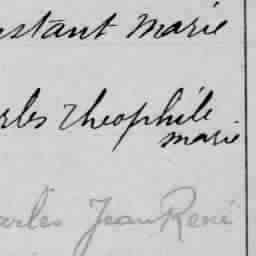 nstant Marie
rles Théophile
marie
arles Jean René